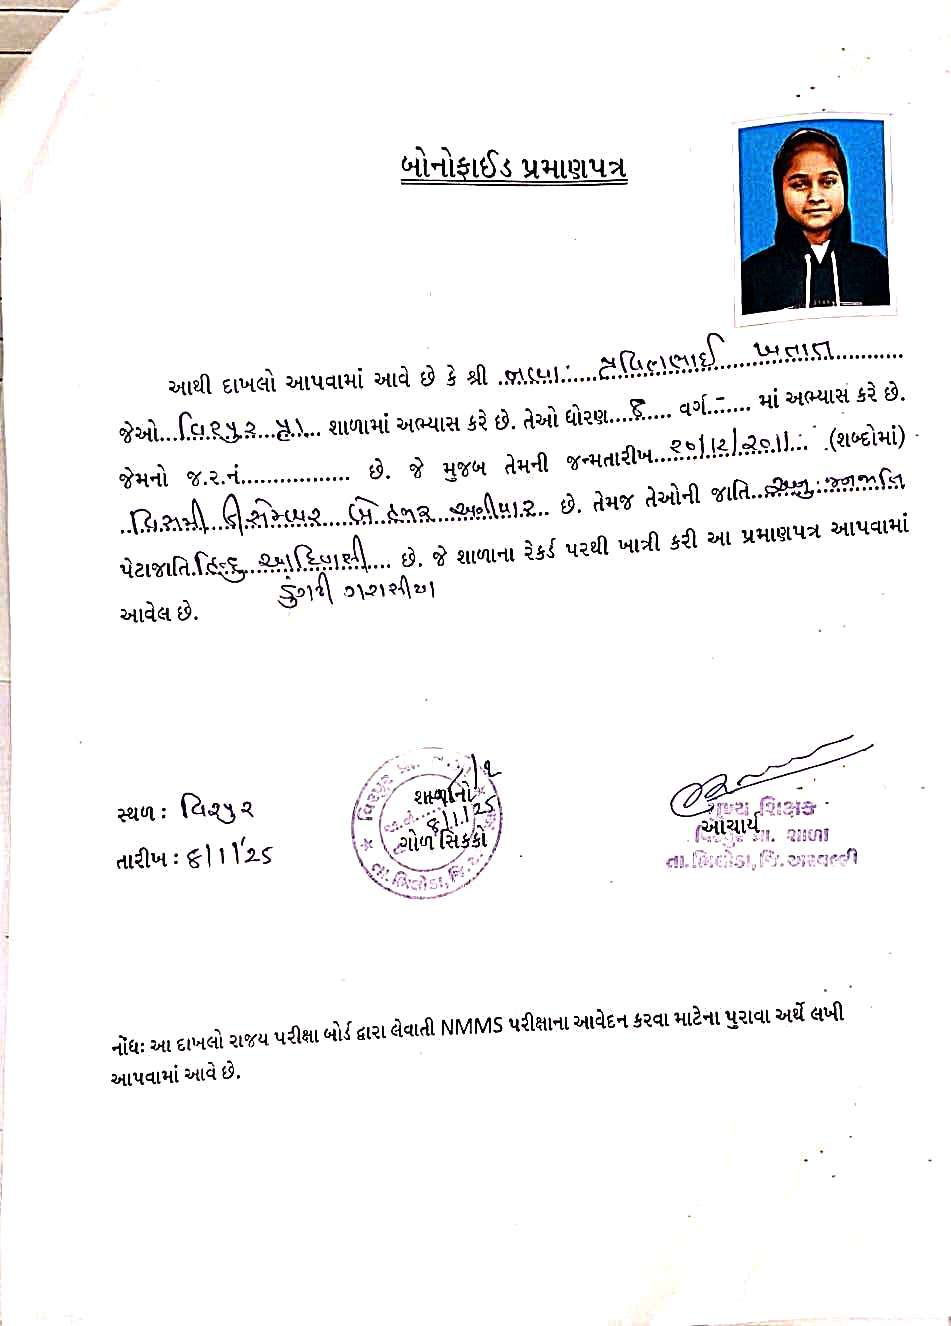 બોનોફાઈડ પ્રમાણપત્ર
આથી દાખલો આપવામાં આવે છે કે શ્રી ............................... ખતાત............
જેઓ...વિરપુર પ્રા... શાળામાં અભ્યાસ કરે છે. તેઓ ધોરણ....૮.... વર્ગ..-.... માં અભ્યાસ કરે છે.
જેમનો જ.ર.નં................. છે. જે મુજબ તેમની જન્મતારીખ...૨૦/૧૨/૨૦૧૧..... (શબ્દોમાં)
..વિસમી ડીસેમ્બર બે હજાર અગીયાર.. છે. તેમજ તેઓની જાતિ..અનુ: જનજાતિ
પેટાજાતિ.હિન્દુ આદિવાસી.... છે. જે શાળાના રેકર્ડ પરથી ખાત્રી કરી આ પ્રમાણપત્ર આપવામાં
ડુંગરી ગરાસીયા
આવેલ છે.
સ્થળ : વિરપુર
તારીખ : ૪/૧/'૨૫
શાળાનો
૪/૧/૨૫
ગોળ સિક્કો
તા.ભિલોડા, જિ.
મુખ્ય શિક્ષક
આચાર્ય
વિરપુર પ્રા. શાળા
તા.ભિલોડા, જિ.અરવલ્લી
નોંધ: આ દાખલો રાજય પરીક્ષા બોર્ડ દ્વારા લેવાતી NMMS પરીક્ષાના આવેદન કરવા માટેના પુરાવા અર્થે લખી
આપવામાં આવે છે.